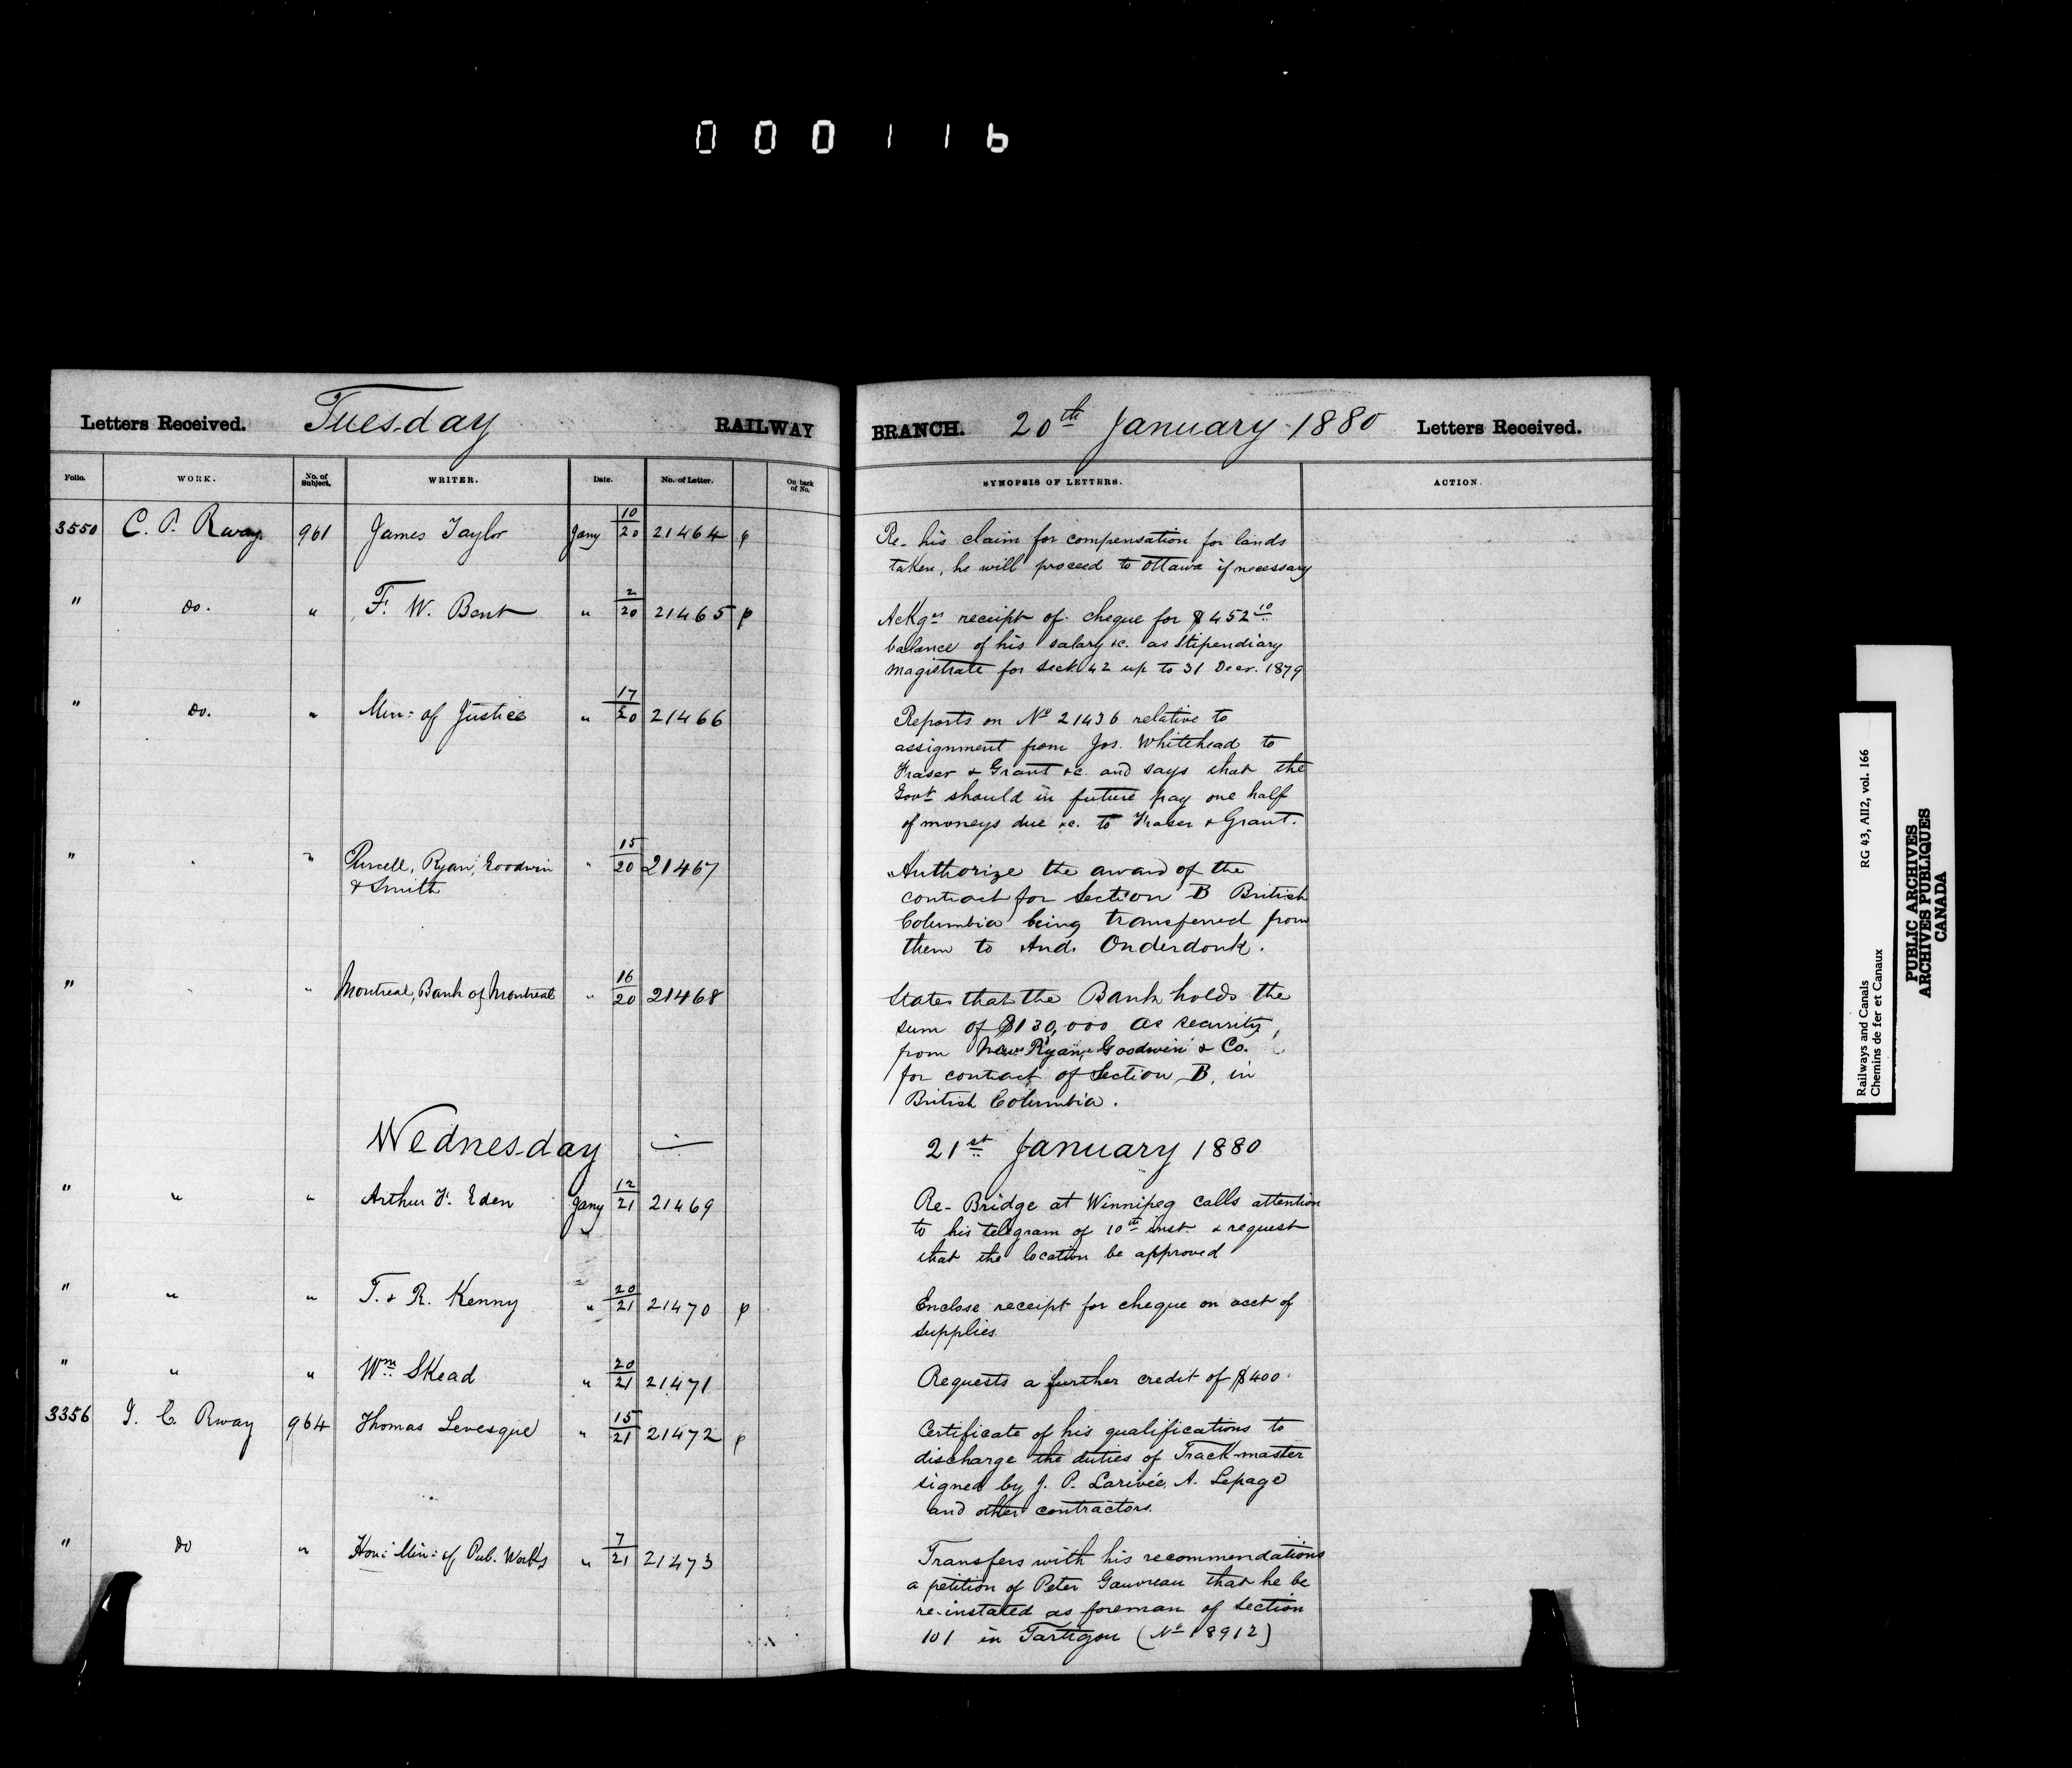 000116
Letters Received. Tuesday RAILWAY BRANCH. 20th January 1880 Letters Received.
Folio. WORK. No. of Subject. WRITER. Date. No. of Letter. On back of No. SYNOPSIS OF LETTERS. ACTION.
3550 C. P. Rway. 961 James Taylor Jany 10/20 21464 Re- his claim for compensation for lands
taken, he will proceed to Ottawa if necessary
" do. " F. W. Bent " 2/20 21465 Ackgs receipt of cheque for $452 10
balance of his salary &c. as Stipendiary
Magistrate for Sect. 42 up to 31 Decr. 1879
" do. " Min: of Justice " 17/20 21466 Reports on No 21436 relative to
assignment from Jos. Whitehead to
Fraser & Grant &c. and says that the
Govt should in future pay one half
of moneys due &c. to Fraser & Grant.
" " Purcell, Ryan, Goodwin " 15/20 21467 Authorize the award of the
& Smith
contract for Section B British
Columbia being transferred from
them to And. Onderdonk.
" " Montreal, Bank of Montreal " 16/20 21468 States that the Bank holds the
sum of $130,000 as security,
from Ryan, Goodwin & Co.
for contract of Section B, in
British Columbia.
Wednesday 21st January 1880
" " " Arthur F. Eden Jany 12/21 21469 Re- Bridge at Winnipeg calls attention
to his telegram of 10th inst. & request
that the location be approved
" " " T. & R. Kenny " 20/21 21470 Enclose receipt for cheque on acct of
supplies
" " " Wm Skead " 20/21 21471 Requests a further credit of $400.
3356 I. C. Rway 964 Thomas Levesque " 15/21 21472 Certificate of his qualifications to
discharge the duties of Track-master
signed by J. P. Larivée, A. Lepage
and other contractors.
" do " Hon: Min: of Pub. Works " 7/21 21473 Transfers with his recommendations
a petition of Peter Gauvreau that he be
re-instated as foreman of Section
101 in Tartigou (No 18912)
Railways and Canals RG 43, AII2, vol. 166
Chemins de fer et Canaux
PUBLIC ARCHIVES
ARCHIVES PUBLIQUES
CANADA